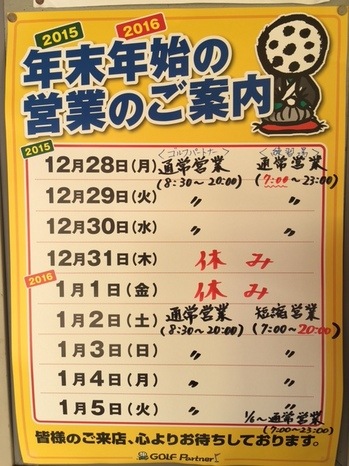 2015 2016
年末年始の
営業のご案内
2015 <ゴルフパートナー> <練習場>
12月28日(月) 通常営業 通常営業
(8:30~20:00) (7:00~23:00)
12月29日(火) 〃 〃
12月30日(水) 〃 〃
12月31日(木) 休み
2016
1月1日(金) 休み
1月2日(土) 通常営業 短縮営業
(8:30~20:00) (7:00~20:00)
1月3日(日) 〃 〃
1月4日(月) 〃 〃
1月5日(火) 〃 〃
1/6~通常営業
(7:00~23:00)
皆様のご来店、心よりお待ちしております。
GOLF Partner